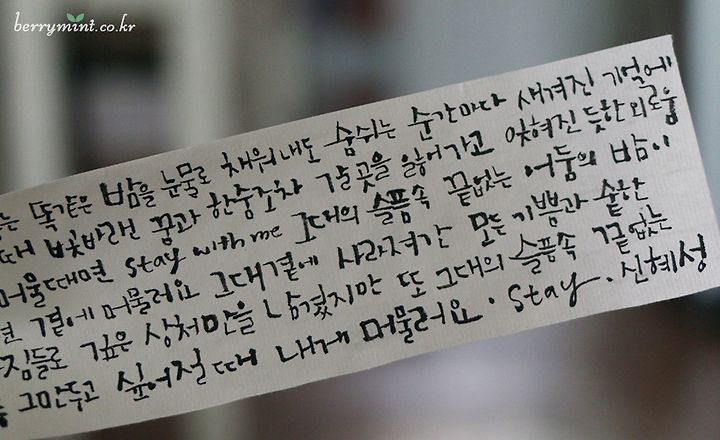 berrymint.co.kr
는 똑같은 밤을 눈물로 채워내도 숨쉬는 순간마다 새겨진 기억에
때 빛바랜 꿈과 한숨조차 갈 곳을 잃어가고 잊혀진 듯한 외로움
머물때면 Stay with me 그대의 슬픔속 끝없는 어둠의 밤이
면 곁에 머물러요 그대곁에 사라져간 모든 기쁨과 숱한
짐들로 깊은 상처만을 남겼지만 또 그대의 슬픔속 끝없는
그만두고 싶어질때 내게 머물러요. Stay. 신혜성